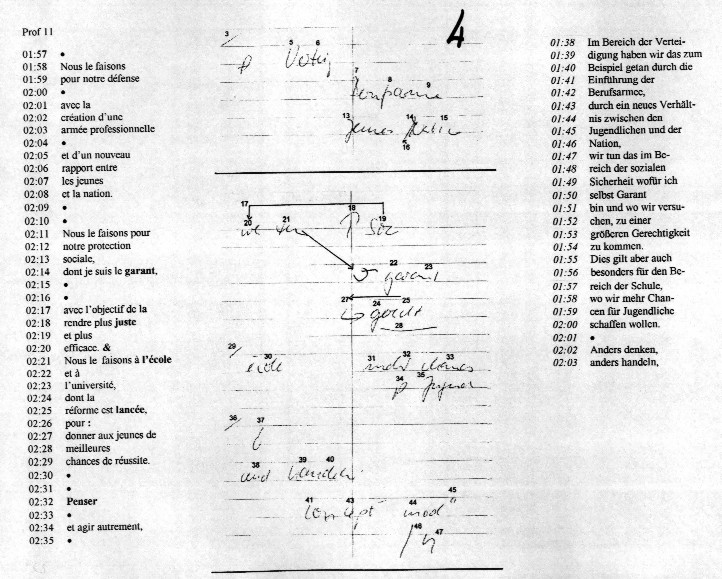 4
Prof 11
01:57 •
01:58 Nous le faisons
01:59 pour notre défense
02:00 •
02:01 avec la
02:02 création d'une
02:03 armée professionnelle
02:04 •
02:05 et d'un nouveau
02:06 rapport entre
02:07 les jeunes
02:08 et la nation.
02:09 •
02:10 •
02:11 Nous le faisons pour
02:12 notre protection
02:13 sociale,
02:14 dont je suis le garant,
02:15 •
02:16 •
02:17 avec l'objectif de la
02:18 rendre plus juste
02:19 et plus
02:20 efficace. &
02:21 Nous le faisons à l'école
02:22 et à
02:23 l'université,
02:24 dont la
02:25 réforme est lancée,
02:26 pour :
02:27 donner aux jeunes de
02:28 meilleures
02:29 chances de réussite.
02:30 •
02:31 •
02:32 Penser
02:33 •
02:34 et agir autrement,
02:35 •
3
5 6
7 8 9
13 14 15
jeunes
16
17 18 19
soz
20 21
22 23
garant
27 24 25
28
29 30 31 32 33
école
34 35
36 37
38 39 40
und
41 43 44 45
concept mod
46 47
01:38 Im Bereich der Vertei-
01:39 digung haben wir das zum
01:40 Beispiel getan durch die
01:41 Einführung der
01:42 Berufsarmee,
01:43 durch ein neues Verhält-
01:44 nis zwischen den
01:45 Jugendlichen und der
01:46 Nation,
01:47 wir tun das im Be-
01:48 reich der sozialen
01:49 Sicherheit wofür ich
01:50 selbst Garant
01:51 bin und wo wir versu-
01:52 chen, zu einer
01:53 größeren Gerechtigkeit
01:54 zu kommen.
01:55 Dies gilt aber auch
01:56 besonders für den Be-
01:57 reich der Schule,
01:58 wo wir mehr Chan-
01:59 cen für Jugendliche
02:00 schaffen wollen.
02:01 •
02:02 Anders denken,
02:03 anders handeln,